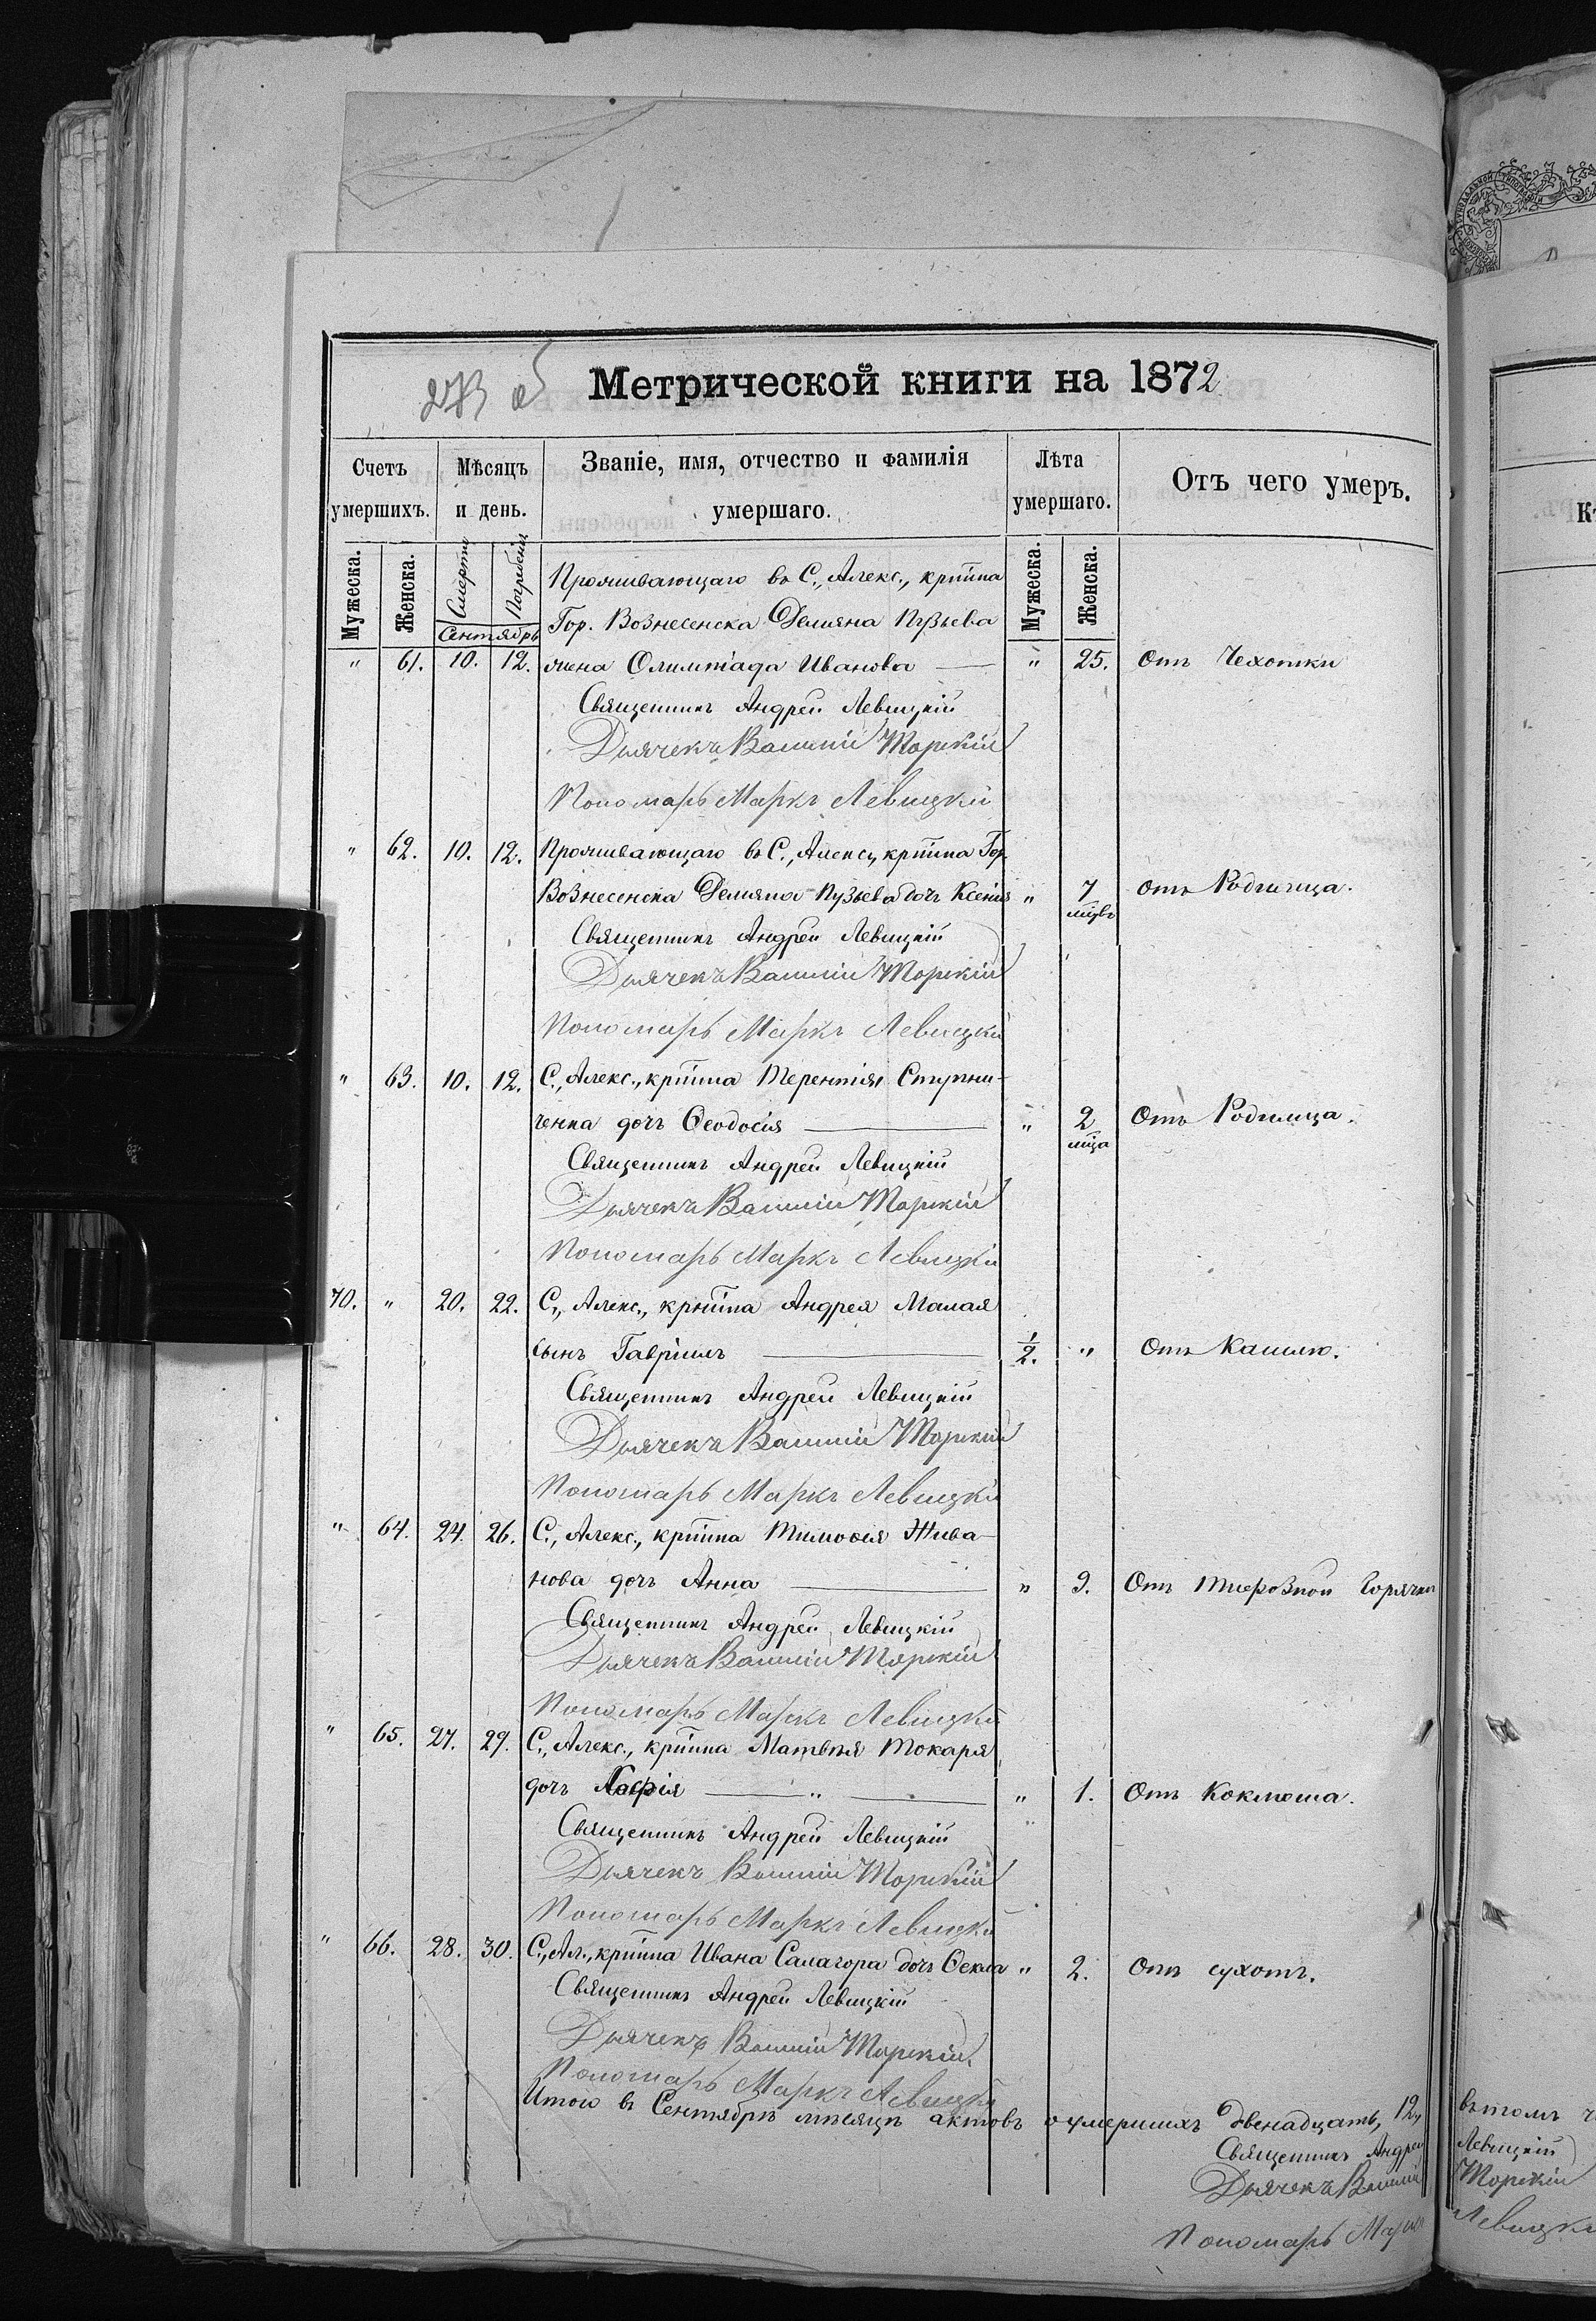 273 об
Метрической книги на 1872
Счетъ умершихъ.
Мѣсяцъ и день.
Званіе, имя, отчество и фамилія умершаго.
Лѣта умершаго.
Отъ чего умеръ.
Мужеска. Женска. Смерти Погребенія Мужеска. Женска.
Сентябрь
Проживающаго въ С., Алекс., крпіина
Гор. Вознесенска Демяна Пузьева
" 61. 10. 12. жена Олимпіада Иванова — " 25. Отъ Чехотки
Священникъ Андрей Левицкій
Дьячекъ Василій Торскій
Пономарь Маркъ Левицкій
" 62. 10. 12. Проживающаго въ С., Алекс., крпіина Гор.
Вознесенска Демяна Пузьева дочь Ксенія " 7 мцвъ Отъ Родимца.
Священникъ Андрей Левицкій
Дьячекъ Василій Торскій
Пономарь Маркъ Левицкій
" 63. 10. 12. С., Алекс., крпіина Терентія
ченка дочь Ѳеодосія — " 2 мца Отъ Родимца.
Священникъ Андрей Левицкій
Дьячекъ Василій Торскій
Пономарь Маркъ Левицкій
70. " 20. 22. С., Алекс., крпіина Андрея Малая
сынъ Гавріилъ — 1/2. " Отъ Кашлю.
Священникъ Андрей Левицкій
Дьячекъ Василій Торскій
Пономарь Маркъ Левицкій
" 64. 24. 26. С., Алекс., крпіина Тимоѳія Жива-
нова дочь Анна — " 9. Отъ Тифозной Горячки
Священникъ Андрей Левицкій
Дьячекъ Василій Торскій
Пономарь Маркъ Левицкій
" 65. 27. 29. С., Алекс., крпіина Матвѣя Токаря
дочь — " — " 1. Отъ Коклюша.
Священникъ Андрей Левицкій
Дьячекъ Василій Торскій
Пономарь Маркъ Левицкій
" 66. 28. 30. С., Ал., крпіина Ивана Салагора дочь Ѳекла " 2. Отъ сухотъ.
Священникъ Андрей Левицкій
Дьячекъ Василій Торскій
Пономарь Маркъ Левицкій
Итого въ Сентябрѣ мѣсяцѣ актовъ о умершихъ двенадцать, 12, въ томъ
Священникъ Андрей Левицкій
Дьячекъ Василій Торскій
Пономарь Маркъ Левицкій